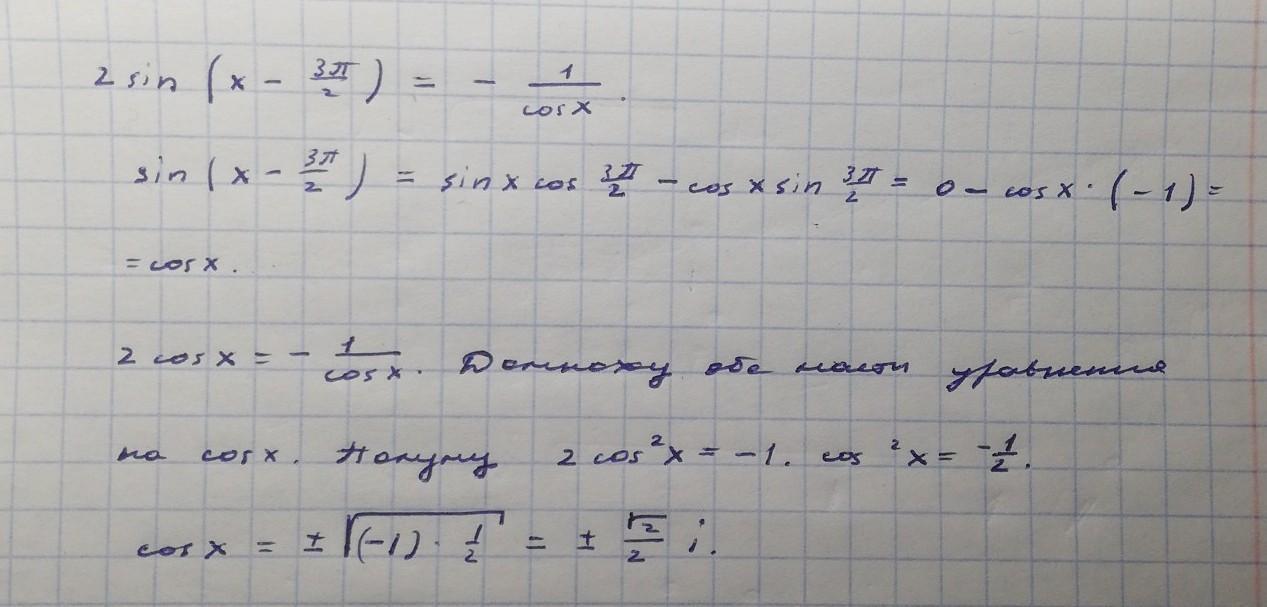 2 sin (x - 3π/2) = - 1/cos x.
sin (x - 3π/2) = sin x cos 3π/2 - cos x sin 3π/2 = 0 - cos x · (-1) =
= cos x.
2 cos x = - 1/cos x. Домножу обе части уравнения
на cos x. Получу 2 cos²x = -1. cos ²x = -1/2.
cos x = ± √((-1) · 1/2) = ± √2/2 i.